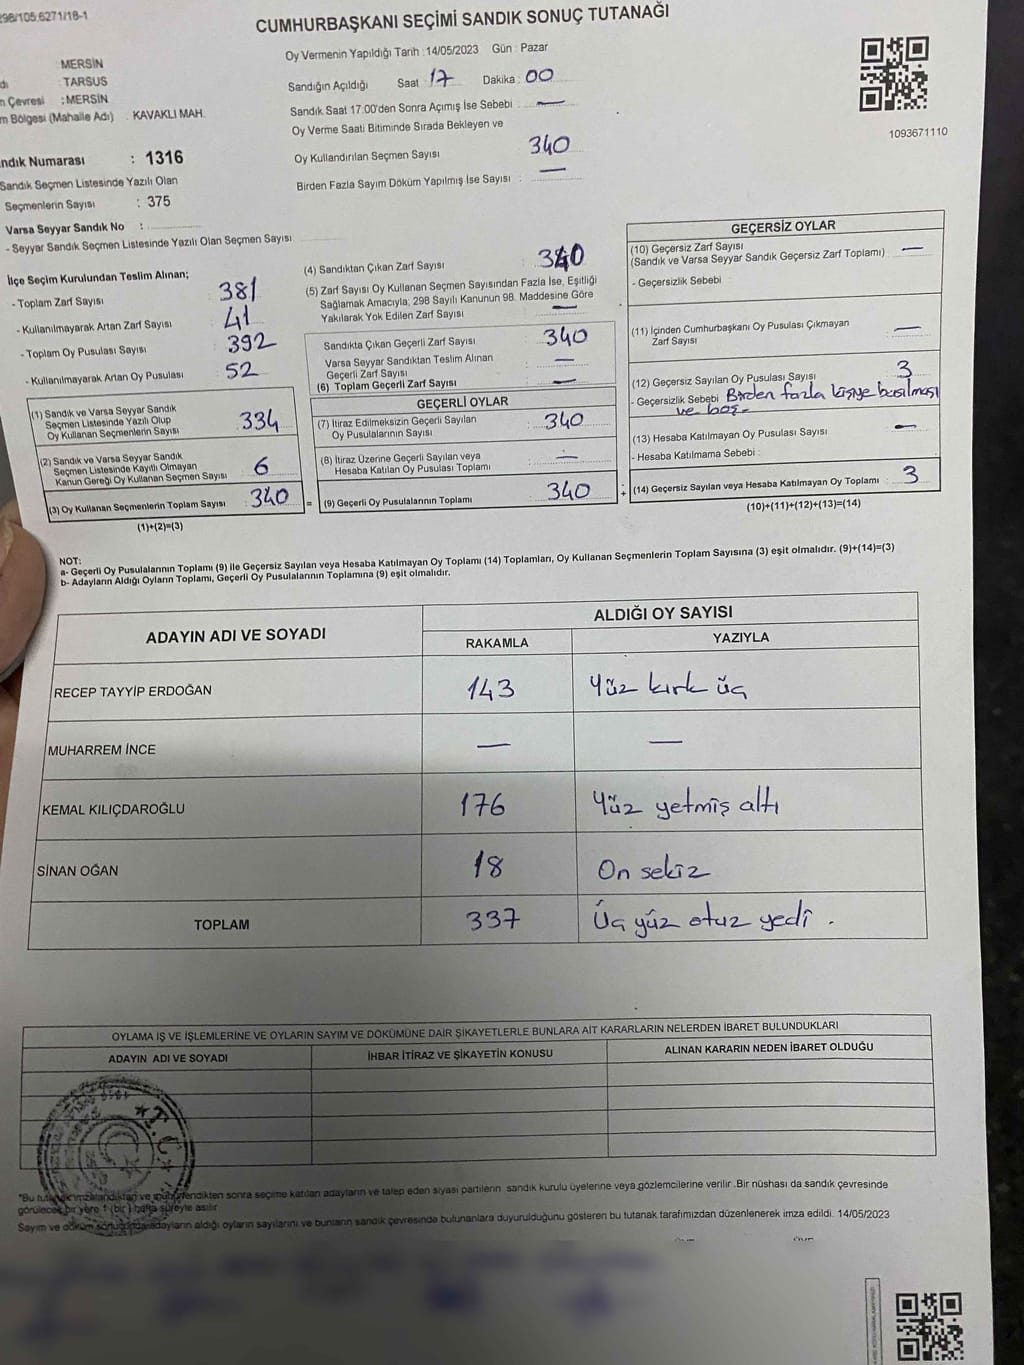 298/105.6271/18-1
CUMHURBAŞKANI SEÇİMİ SANDIK SONUÇ TUTANAĞI
MERSİN
TARSUS
: MERSİN
m Bölgesi (Mahalle Adı) : KAVAKLI MAH.
Oy Vermenin Yapıldığı Tarih : 14/05/2023 Gün : Pazar
Sandığın Açıldığı Saat : 17 Dakika : 00
Sandık Saat 17:00'den Sonra Açımış İse Sebebi : —
Oy Verme Saati Bitiminde Sırada Bekleyen ve
Oy Kullandırılan Seçmen Sayısı : 340
Birden Fazla Sayım Döküm Yapılmış İse Sayısı : —
1093671110
ndık Numarası : 1316
Sandık Seçmen Listesinde Yazılı Olan
Seçmenlerin Sayısı : 375
Varsa Seyyar Sandık No :
- Seyyar Sandık Seçmen Listesinde Yazılı Olan Seçmen Sayısı
İlçe Seçim Kurulundan Teslim Alınan;
- Toplam Zarf Sayısı : 381
- Kullanılmayarak Artan Zarf Sayısı : 41
- Toplam Oy Pusulası Sayısı : 392
- Kullanılmayarak Artan Oy Pusulası : 52
(1) Sandık ve Varsa Seyyar Sandık
Seçmen Listesinde Yazılı Olup
Oy Kullanan Seçmenlerin Sayısı : 334
(2) Sandık ve Varsa Seyyar Sandık
Seçmen Listesinde Kayıtlı Olmayan
Kanun Gereği Oy Kullanan Seçmen Sayısı : 6
(3) Oy Kullanan Seçmenlerin Toplam Sayısı : 340 =
(1)+(2)=(3)
(4) Sandıktan Çıkan Zarf Sayısı : 340
(5) Zarf Sayısı Oy Kullanan Seçmen Sayısından Fazla İse, Eşitliği
Sağlamak Amacıyla, 298 Sayılı Kanunun 98. Maddesine Göre
Yakılarak Yok Edilen Zarf Sayısı : —
Sandıkta Çıkan Geçerli Zarf Sayısı : 340
Varsa Seyyar Sandıktan Teslim Alınan
Geçerli Zarf Sayısı : —
(6) Toplam Geçerli Zarf Sayısı : —
GEÇERLİ OYLAR
(7) İtiraz Edilmeksizin Geçerli Sayılan
Oy Pusulalarının Sayısı : 340
(8) İtiraz Üzerine Geçerli Sayılan veya
Hesaba Katılan Oy Pusulası Toplamı : —
(9) Geçerli Oy Pusulalarının Toplamı : 340 +
GEÇERSİZ OYLAR
(10) Geçersiz Zarf Sayısı
(Sandık ve Varsa Seyyar Sandık Geçersiz Zarf Toplamı) : —
- Geçersizlik Sebebi :
(11) İçinden Cumhurbaşkanı Oy Pusulası Çıkmayan
Zarf Sayısı : —
(12) Geçersiz Sayılan Oy Pusulası Sayısı : 3
- Geçersizlik Sebebi : Birden fazla kişiye basılması
ve boş.
(13) Hesaba Katılmayan Oy Pusulası Sayısı : —
- Hesaba Katılmama Sebebi :
(14) Geçersiz Sayılan veya Hesaba Katılmayan Oy Toplamı : 3
(10)+(11)+(12)+(13)=(14)
NOT:
a- Geçerli Oy Pusulalarının Toplamı (9) ile Geçersiz Sayılan veya Hesaba Katılmayan Oy Toplamı (14) Toplamları, Oy Kullanan Seçmenlerin Toplam Sayısına (3) eşit olmalıdır. (9)+(14)=(3)
b- Adayların Aldığı Oyların Toplamı, Geçerli Oy Pusulalarının Toplamına (9) eşit olmalıdır.
ADAYIN ADI VE SOYADI ALDIĞI OY SAYISI
RAKAMLA YAZIYLA
RECEP TAYYİP ERDOĞAN 143 Yüz kırk üç
MUHARREM İNCE — —
KEMAL KILIÇDAROĞLU 176 Yüz yetmiş altı
SİNAN OĞAN 18 On sekiz
TOPLAM 337 Üç yüz otuz yedi .
OYLAMA İŞ VE İŞLEMLERİNE VE OYLARIN SAYIM VE DÖKÜMÜNE DAİR ŞİKAYETLERLE BUNLARA AİT KARARLARIN NELERDEN İBARET BULUNDUKLARI
ADAYIN ADI VE SOYADI İHBAR İTİRAZ VE ŞİKAYETİN KONUSU ALINAN KARARIN NEDEN İBARET OLDUĞU
T.C.
*Bu tutanak imzalandıktan ve mühürlendikten sonra seçime katılan adayların ve talep eden siyasi partilerin sandık kurulu üyelerine veya gözlemcilerine verilir. Bir nüshası da sandık çevresinde
görülecek bir yere 1 (bir) hafta süreyle asılır
Sayım ve döküm sonucunda adayların aldığı oyların sayılarını ve bunların sandık çevresinde bulunanlara duyurulduğunu gösteren bu tutanak tarafımızdan düzenlenerek imza edildi. 14/05/2023